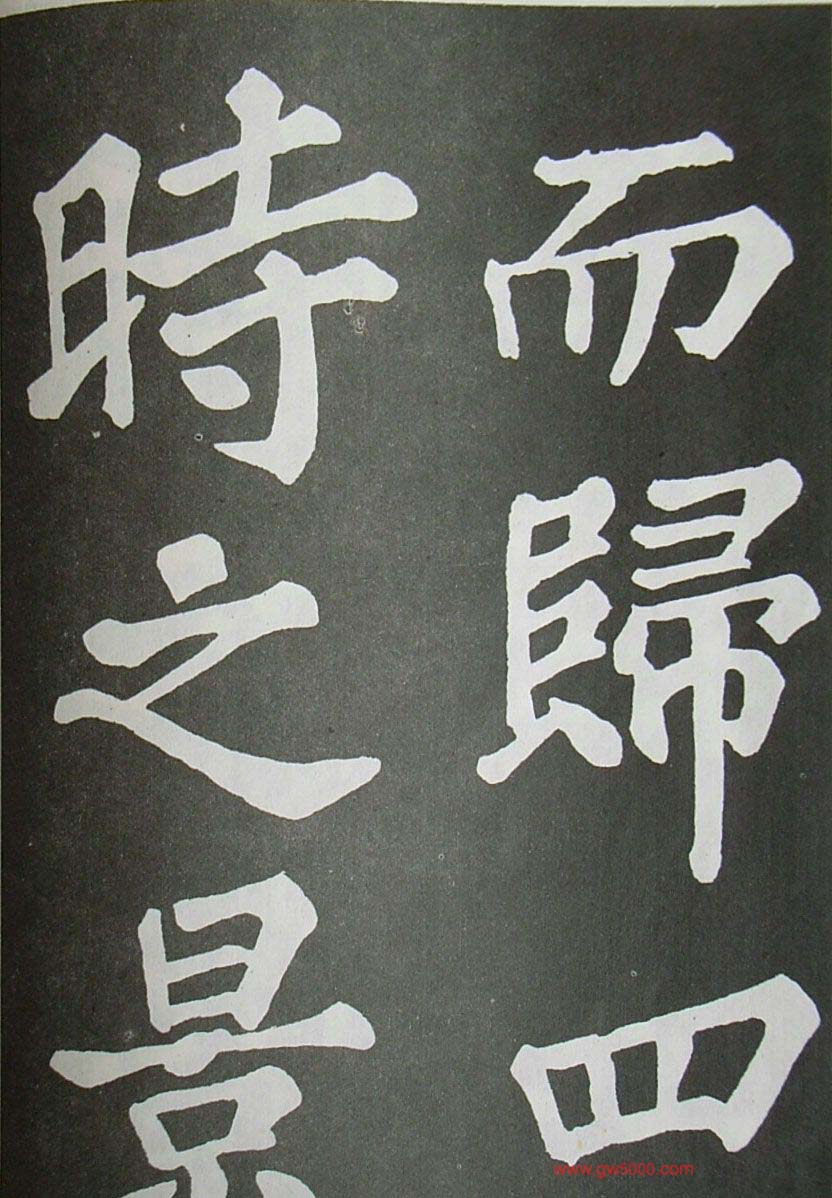 而歸四
時之景
www.gw5000.com